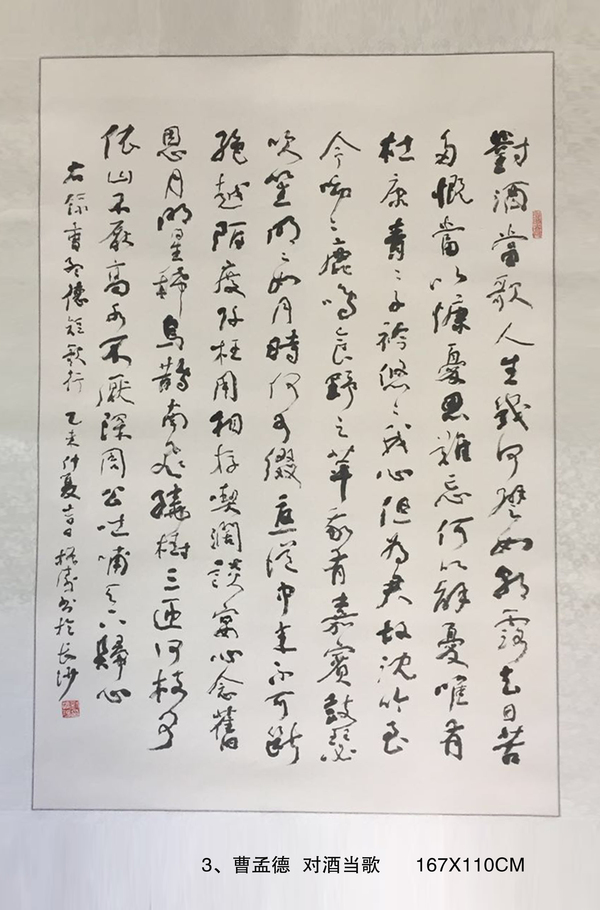 對酒當歌人生幾何譬如朝露去日苦
多慨當以慷憂思難忘何以解憂唯有
杜康青〻子衿悠〻我心但為君故沈吟至
今呦〻鹿鳴食野之苹我有嘉賓鼓瑟
吹笙明〻如月時何可綴憂從中來不可斷
絕越陌度阡枉用相存喫闊談宴心念舊
恩月明星稀烏鵲南飛繞樹三匝何枝可
依山不厭高水不厭深周公吐哺天下歸心
右錄曹孟德短歌行 乙亥仲夏吉日 書於長沙
3、曹孟德 对酒当歌 167X110CM